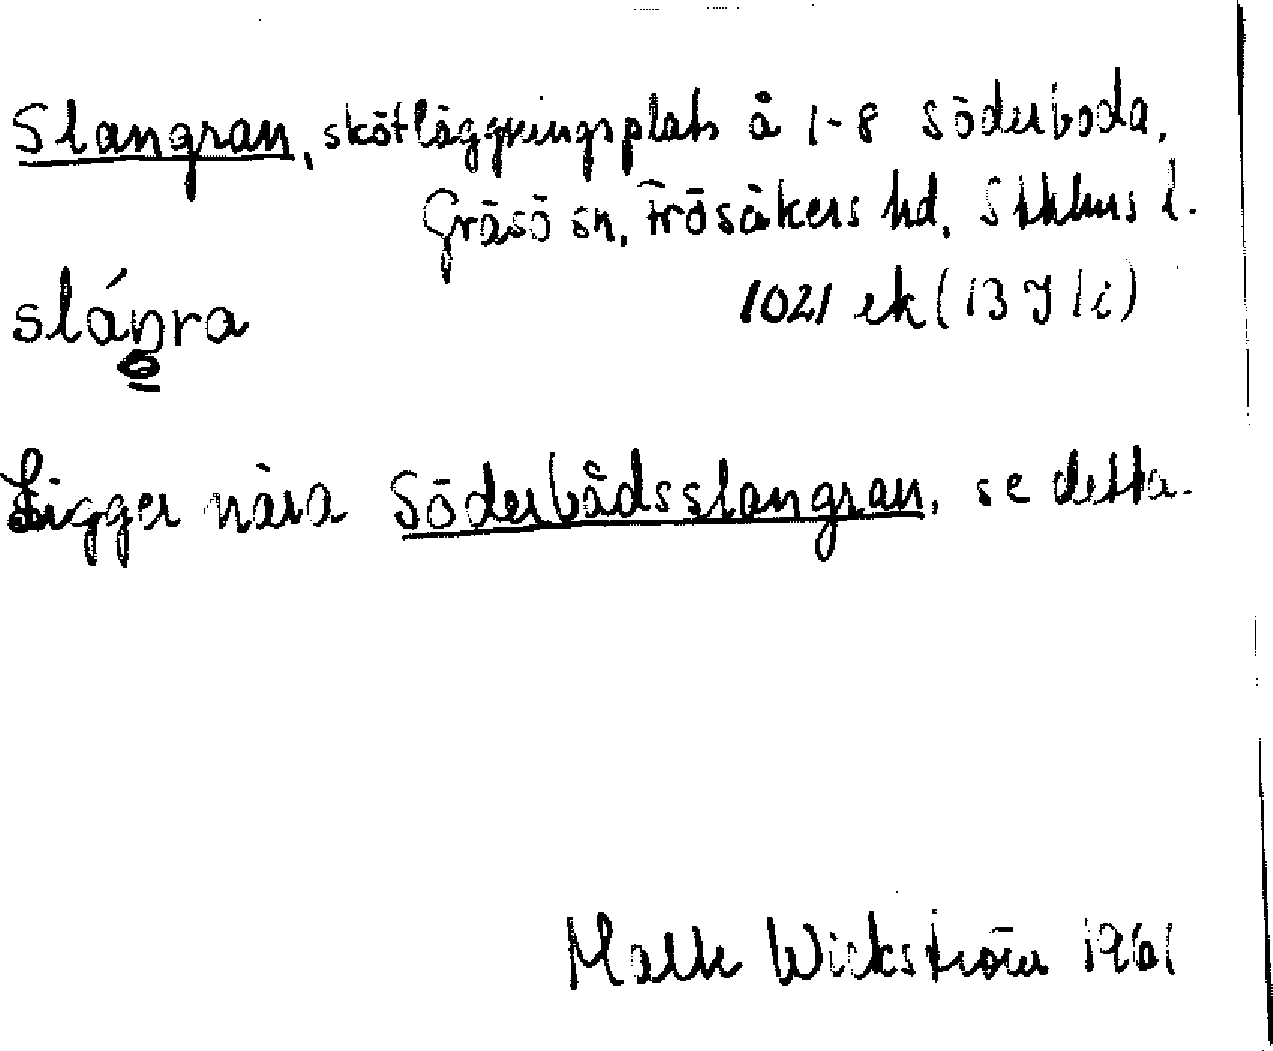 Slangran, skötläggningsplats å 1-8 Söderboda,
Gräsö sn, Frösåkers hd, Sthlms l.
slángra
1021 ek (13 I 1 i)
Ligger nära Söderbådsslangran, se detta.
Wickström 1961